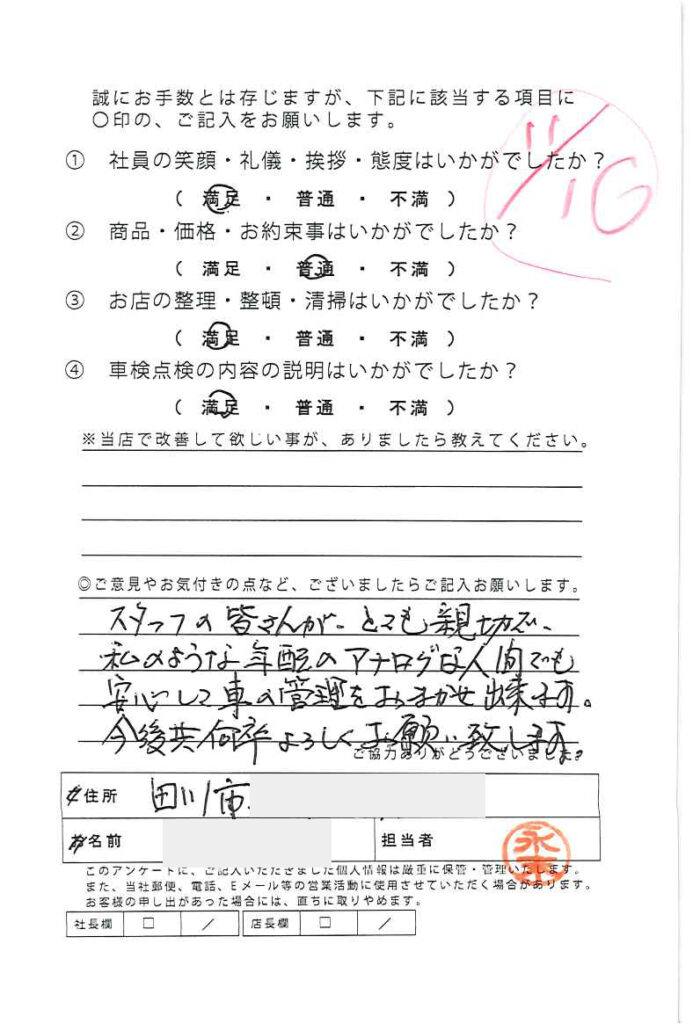 誠にお手数とは存じますが、下記に該当する項目に
〇印の、ご記入をお願いします。
11/16
① 社員の笑顔・礼儀・挨拶・態度はいかがでしたか？
( 満足 ・ 普通 ・ 不満 )
② 商品・価格・お約束事はいかがでしたか？
( 満足 ・ 普通 ・ 不満 )
③ お店の整理・整頓・清掃はいかがでしたか？
( 満足 ・ 普通 ・ 不満 )
④ 車検点検の内容の説明はいかがでしたか？
( 満足 ・ 普通 ・ 不満 )
※当店で改善して欲しい事が、ありましたら教えてください。
◎ご意見やお気付きの点など、ございましたらご記入お願いします。
スタッフの皆さんが、とても親切で、
私のような年配のアナログな人間でも
安心して車の管理をおまかせ出来ます。
今後共何卒よろしくお願い致します。
ご協力ありがとうございました。
ご住所 田川市
お名前 担当者
このアンケートに、ご記入いただきました個人情報は厳重に保管・管理いたします。
また、当社郵便、電話、Eメール等の営業活動に使用させていただく場合があります。
お客様の申し出があった場合には、直ちに取りやめます。
社長欄 □ ／ 店長欄 □ ／